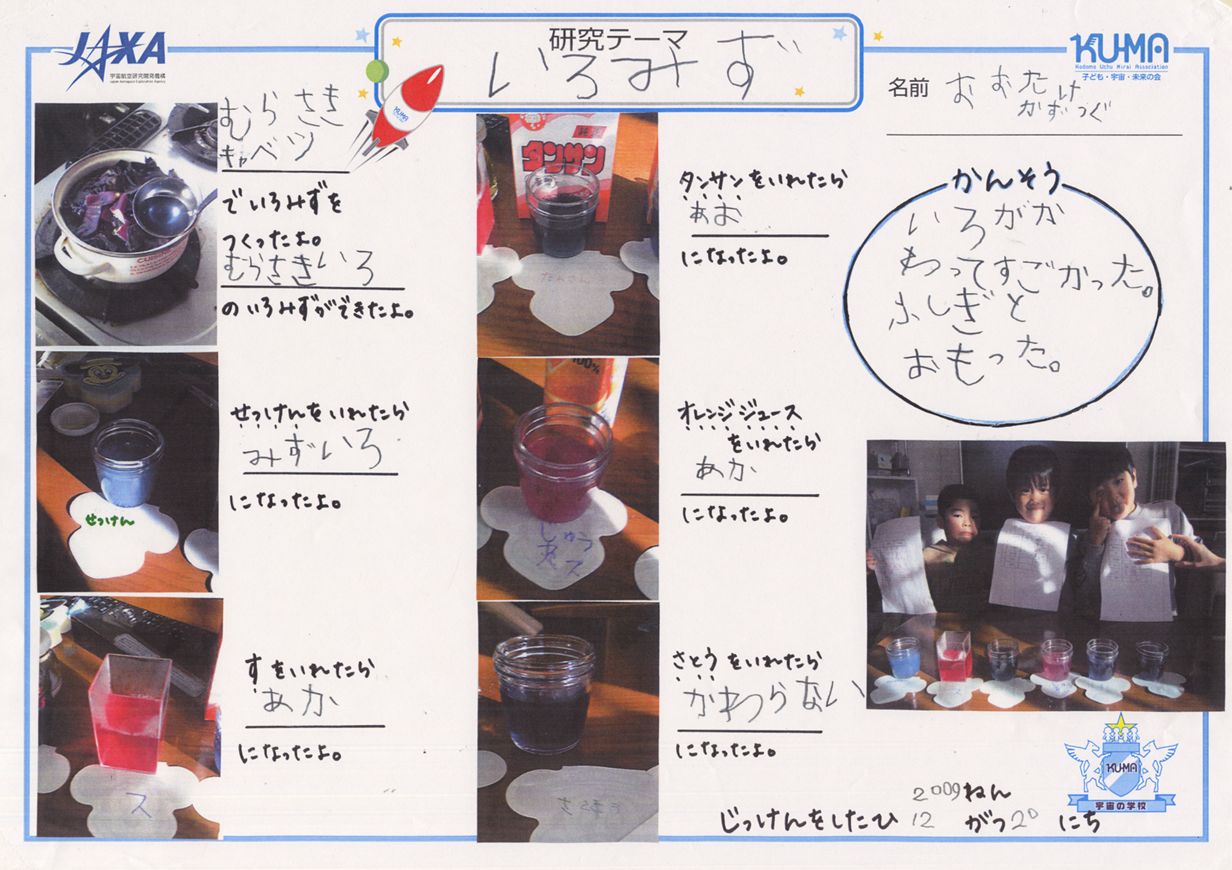 JAXA
宇宙航空研究開発機構
Japan Aerospace Exploration Agency
研究テーマ
いろみず
KUMA
KU-MA
Kodomo Uchu Mirai Association
子ども・宇宙・未来の会
名前 おおたけ
かずつぐ
むらさき
キャベツ
でいろみずを
つくったよ。
むらさきいろ
のいろみずができたよ。
せっけん
せっけんをいれたら
みずいろ
になったよ。
ス
すをいれたら
あか
になったよ。
タンサン
たんさん
タンサンをいれたら
あお
になったよ。
100%
じゅうス
オレンジジュース
をいれたら
あか
になったよ。
さとう
さとうをいれたら
かわらない
になったよ。
かんそう
いろがか
わってすごかった。
ふしぎと
おもった。
KUMA
宇宙の学校
じっけんをしたひ 2009ねん
12がつ20にち